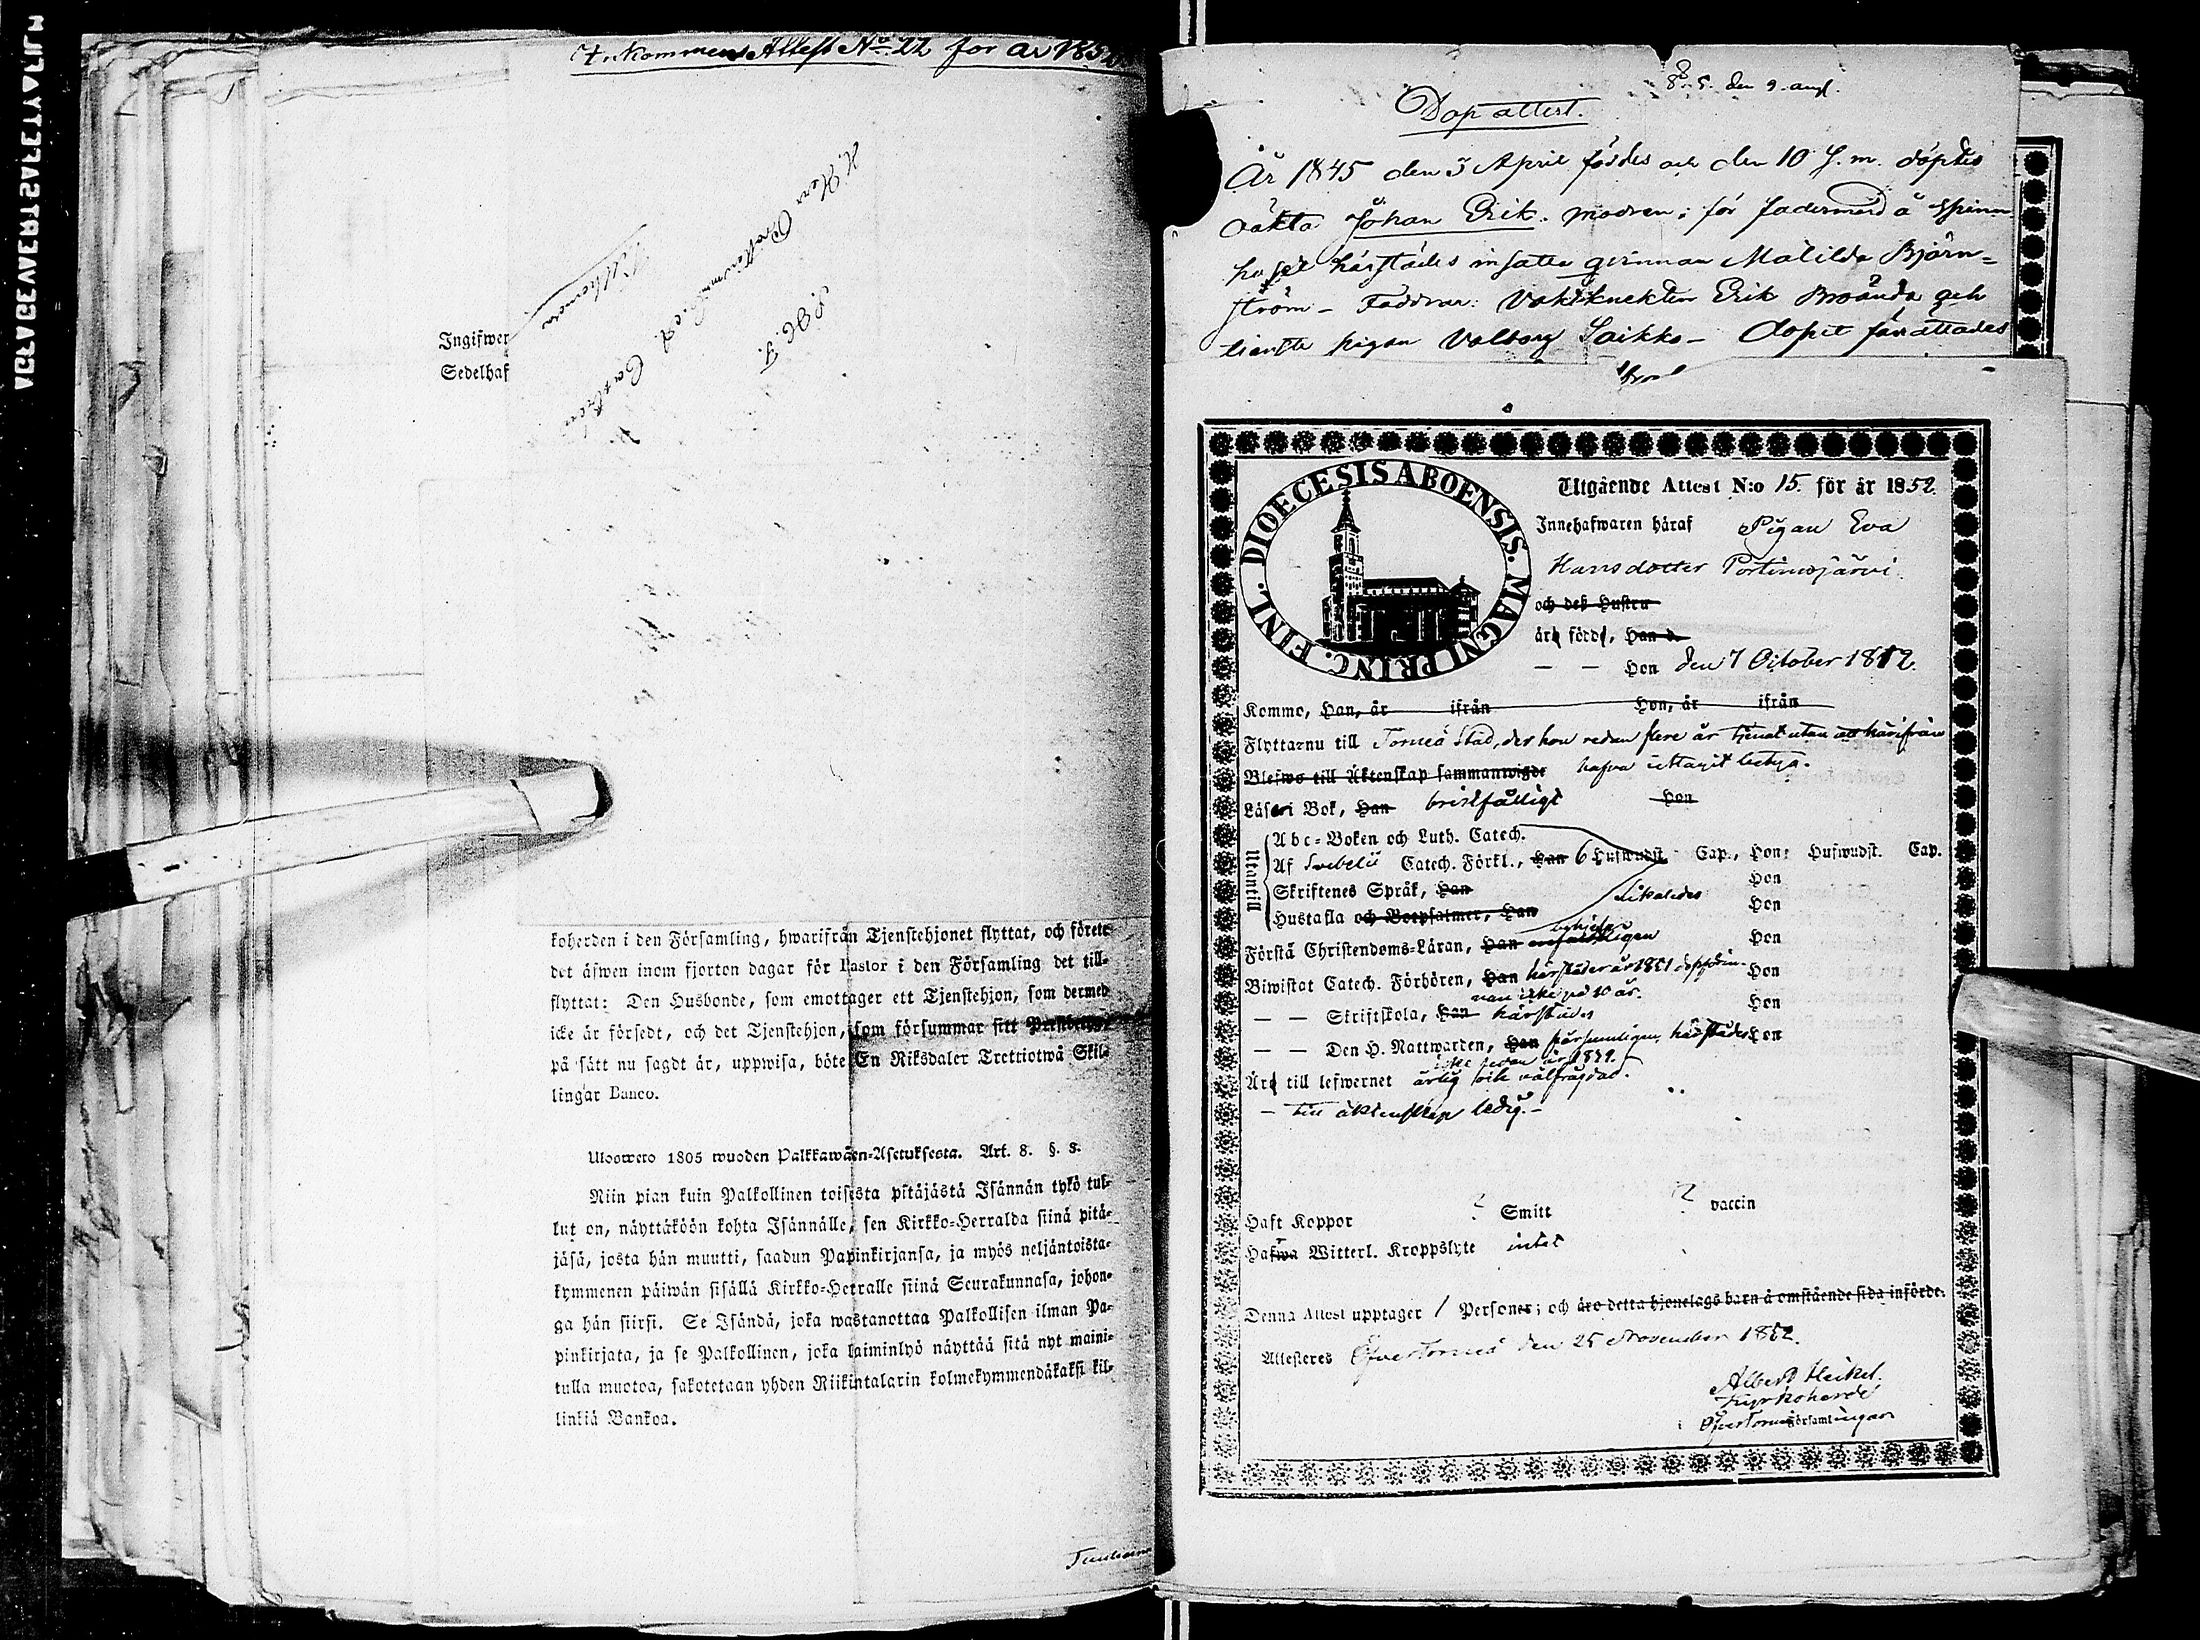 Ank. kommen Attest No 22 for år 185
Ingifwer
Sedelhaf
koherden i den Församling, hwarifrån Tjenstehjonet flyttat, och förete
det äfwen inom fjorton dagar för Pastor i den Församling det till-
flyttat: Den Husbonde, som emottager ett Tjenstehjon, som dermed
icke är försedt, och det Tjenstehjon, som försummar sitt
på sätt nu sagdt är, uppwisa, böte En Riksdaler Trettiotwå Skil-
lingar Banco.
Ulosweto 1805 wuoden Palkkawäen-Asetuksesta. Art. 8. §. 3.
Niin pian kuin Palkollinen toisesta pitäjästä Isännän tykö tul-
lut on, näyttäköön kohta Isännälle, sen Kirkko-Herralda siinä pitä-
jäsä, josta hän muutti, saadun Papinkirjansa, ja myös neljäntoista-
kymmenen päiwän sisällä Kirkko-Herralle siinä Seurakunnasa, johon-
ga hän siirsi. Se Isändä, joka wastanottaa Palkollisen ilman Pa-
pinkirjata, ja se Palkollinen, joka laiminlyö näyttää sitä nyt maini-
tulla muotoa, sakotetaan yhden Riikintalarin kolmekymmendäkaksi kil-
linkiä Bankoa.
den 9. aug.
Dop attest.
År 1845 den 3 April föddes och den 10 s. m. döptes
oäkta Johan Erik. modren; för fadermord å spinn
huset härstädes insatta qvinnan Matilda Björn=
ström – Faddrar: Vaktknekten Erik och
tienste pigan Valborg Saikko – Dopet förrättades
DIOECESIS ABOENSIS. MAGNI PRINC. FINL.
Utgående Attest N:o 15. för år 1852.
Innehafwaren häraf Pigan Eva
Hansdotter Portimojärvi.
och deß Hustru
äro födde, Han d.
— — Hon den 7 October 1812.
Kommo, Han, år ifrån Hon, år ifrån
Flyttar nu till Torneå Stad, der hon redan flere år tjenat utan att härifrån
Blefwo till Äktenskap sammanwigde hafva uttagit betyg.
Läser i Bok, Han bristfälligt Hon
Utantill
Abc-Boken och Luth. Catech.
Af Svebelii Catech. Förkl., Han 6 Hufwudst. Cap., Hon: Hufwudst. Cap.
Skriftenes Språk, Han Hon
Hustafla och Botpsalmer, Han likaledes Hon
Förstå Christendoms-Läran, Han Hon
Biwistat Catech. Förhören, Han härstädes år 1851 Hon
— — Skriftskola, Han härstädes Hon
— — Den H. Nattwarden, Han härstädes Hon
icke sedan år
Äro till lefwernet ärlig och välfrägdad.
– till äktenskap ledig. –
Haft Koppor ? Smitt ? vaccin
Hafwa Witterl. Kroppslyte intet
Denna Attest upptager 1 Personer; och äro detta hjonelags barn å omstående sida införde.
Attesteres Öfvertorneå den 25 November 1852.
Albert Heikel.
Kyrkoherde
Öfvertorneå församlingar